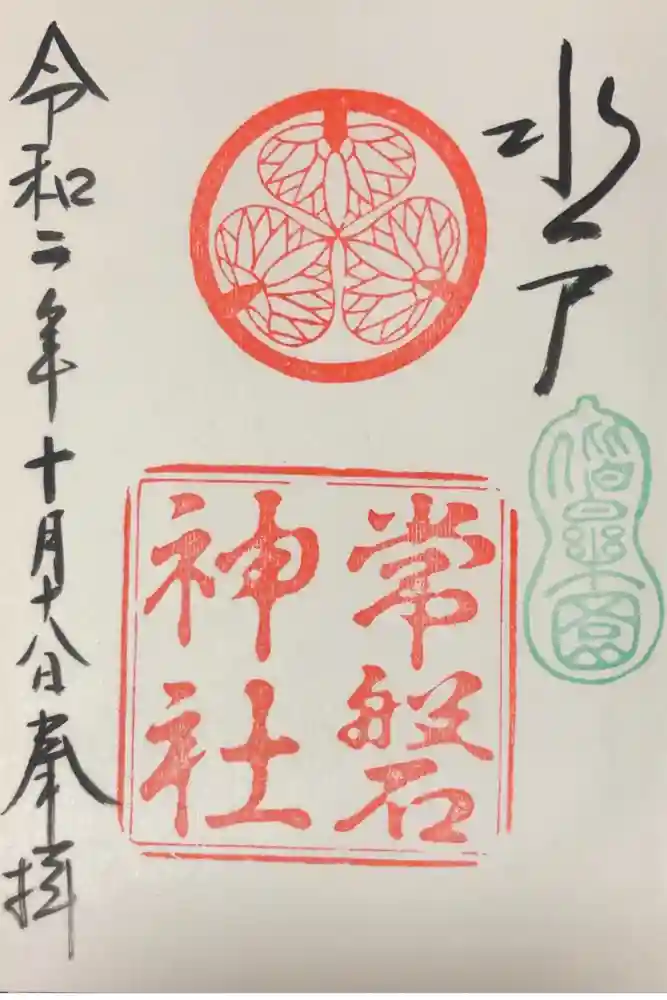 水戸
偕楽園
常磐
神社
令和二年十月十八日奉拝